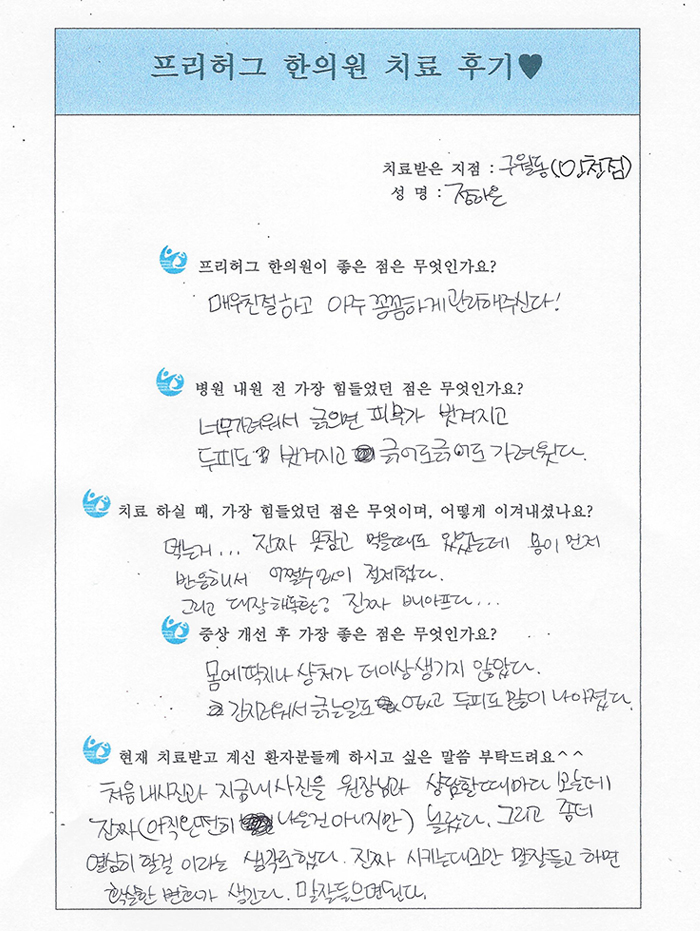 프리허그 한의원 치료 후기♥
치료받은 지점 : 구월동(인천점)
성 명 : 정하은
프리허그 한의원이 좋은 점은 무엇인가요?
매우친절하고 아주 꼼꼼하게 관리해주신다!
병원 내원 전 가장 힘들었던 점은 무엇인가요?
너무가려워서 긁으면 피부가 벗겨지고
두피도 벗겨지고 긁어도긁어도 가려웠다.
치료 하실 때, 가장 힘들었던 점은 무엇이며, 어떻게 이겨내셨나요?
먹는거... 진짜 못참고 먹을때도 있었는데 몸이 먼저
반응해서 어쩔수없이 절제했다.
그리고 대장해독환? 진짜 배아프다...
증상 개선 후 가장 좋은 점은 무엇인가요?
몸에딱지나 상처가 더이상생기지 않았다.
간지러워서긁는일도 없고 두피도 많이 나아졌다.
현재 치료받고 계신 환자분들께 하시고 싶은 말씀 부탁드려요^^
처음내사진과 지금내사진을 원장님과 상담할때마다 보는데
진짜(아직완전히 나은건아니지만) 놀랐다. 그리고 좀더
열심히 할걸 이라는 생각도했다. 진짜 시키는대로만 말잘듣고 하면
확실한 변화가 생긴다. 말잘들으면된다.